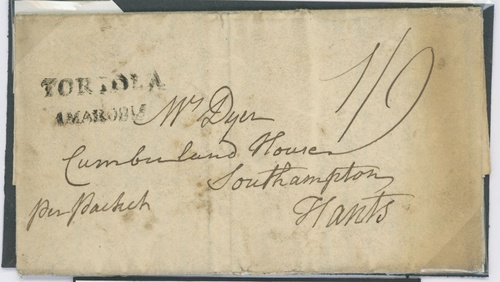 TORTOLA
1/9
Mr Dyer
Cumberland House
Southampton
Hants
per Packet